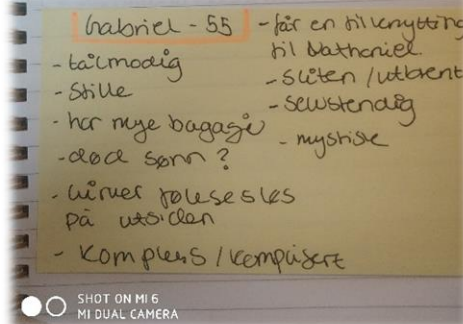 Gabriel - 55
- tålmodig
- stille
- har mye bagasje
- død sønn?
- virker følelsesløs
på utsiden
- kompleks / komplisert
- får en tilknytting
til Nathaniel
- sliten / utbrent
- selvstendig
- mystisk
SHOT ON MI 6
MI DUAL CAMERA